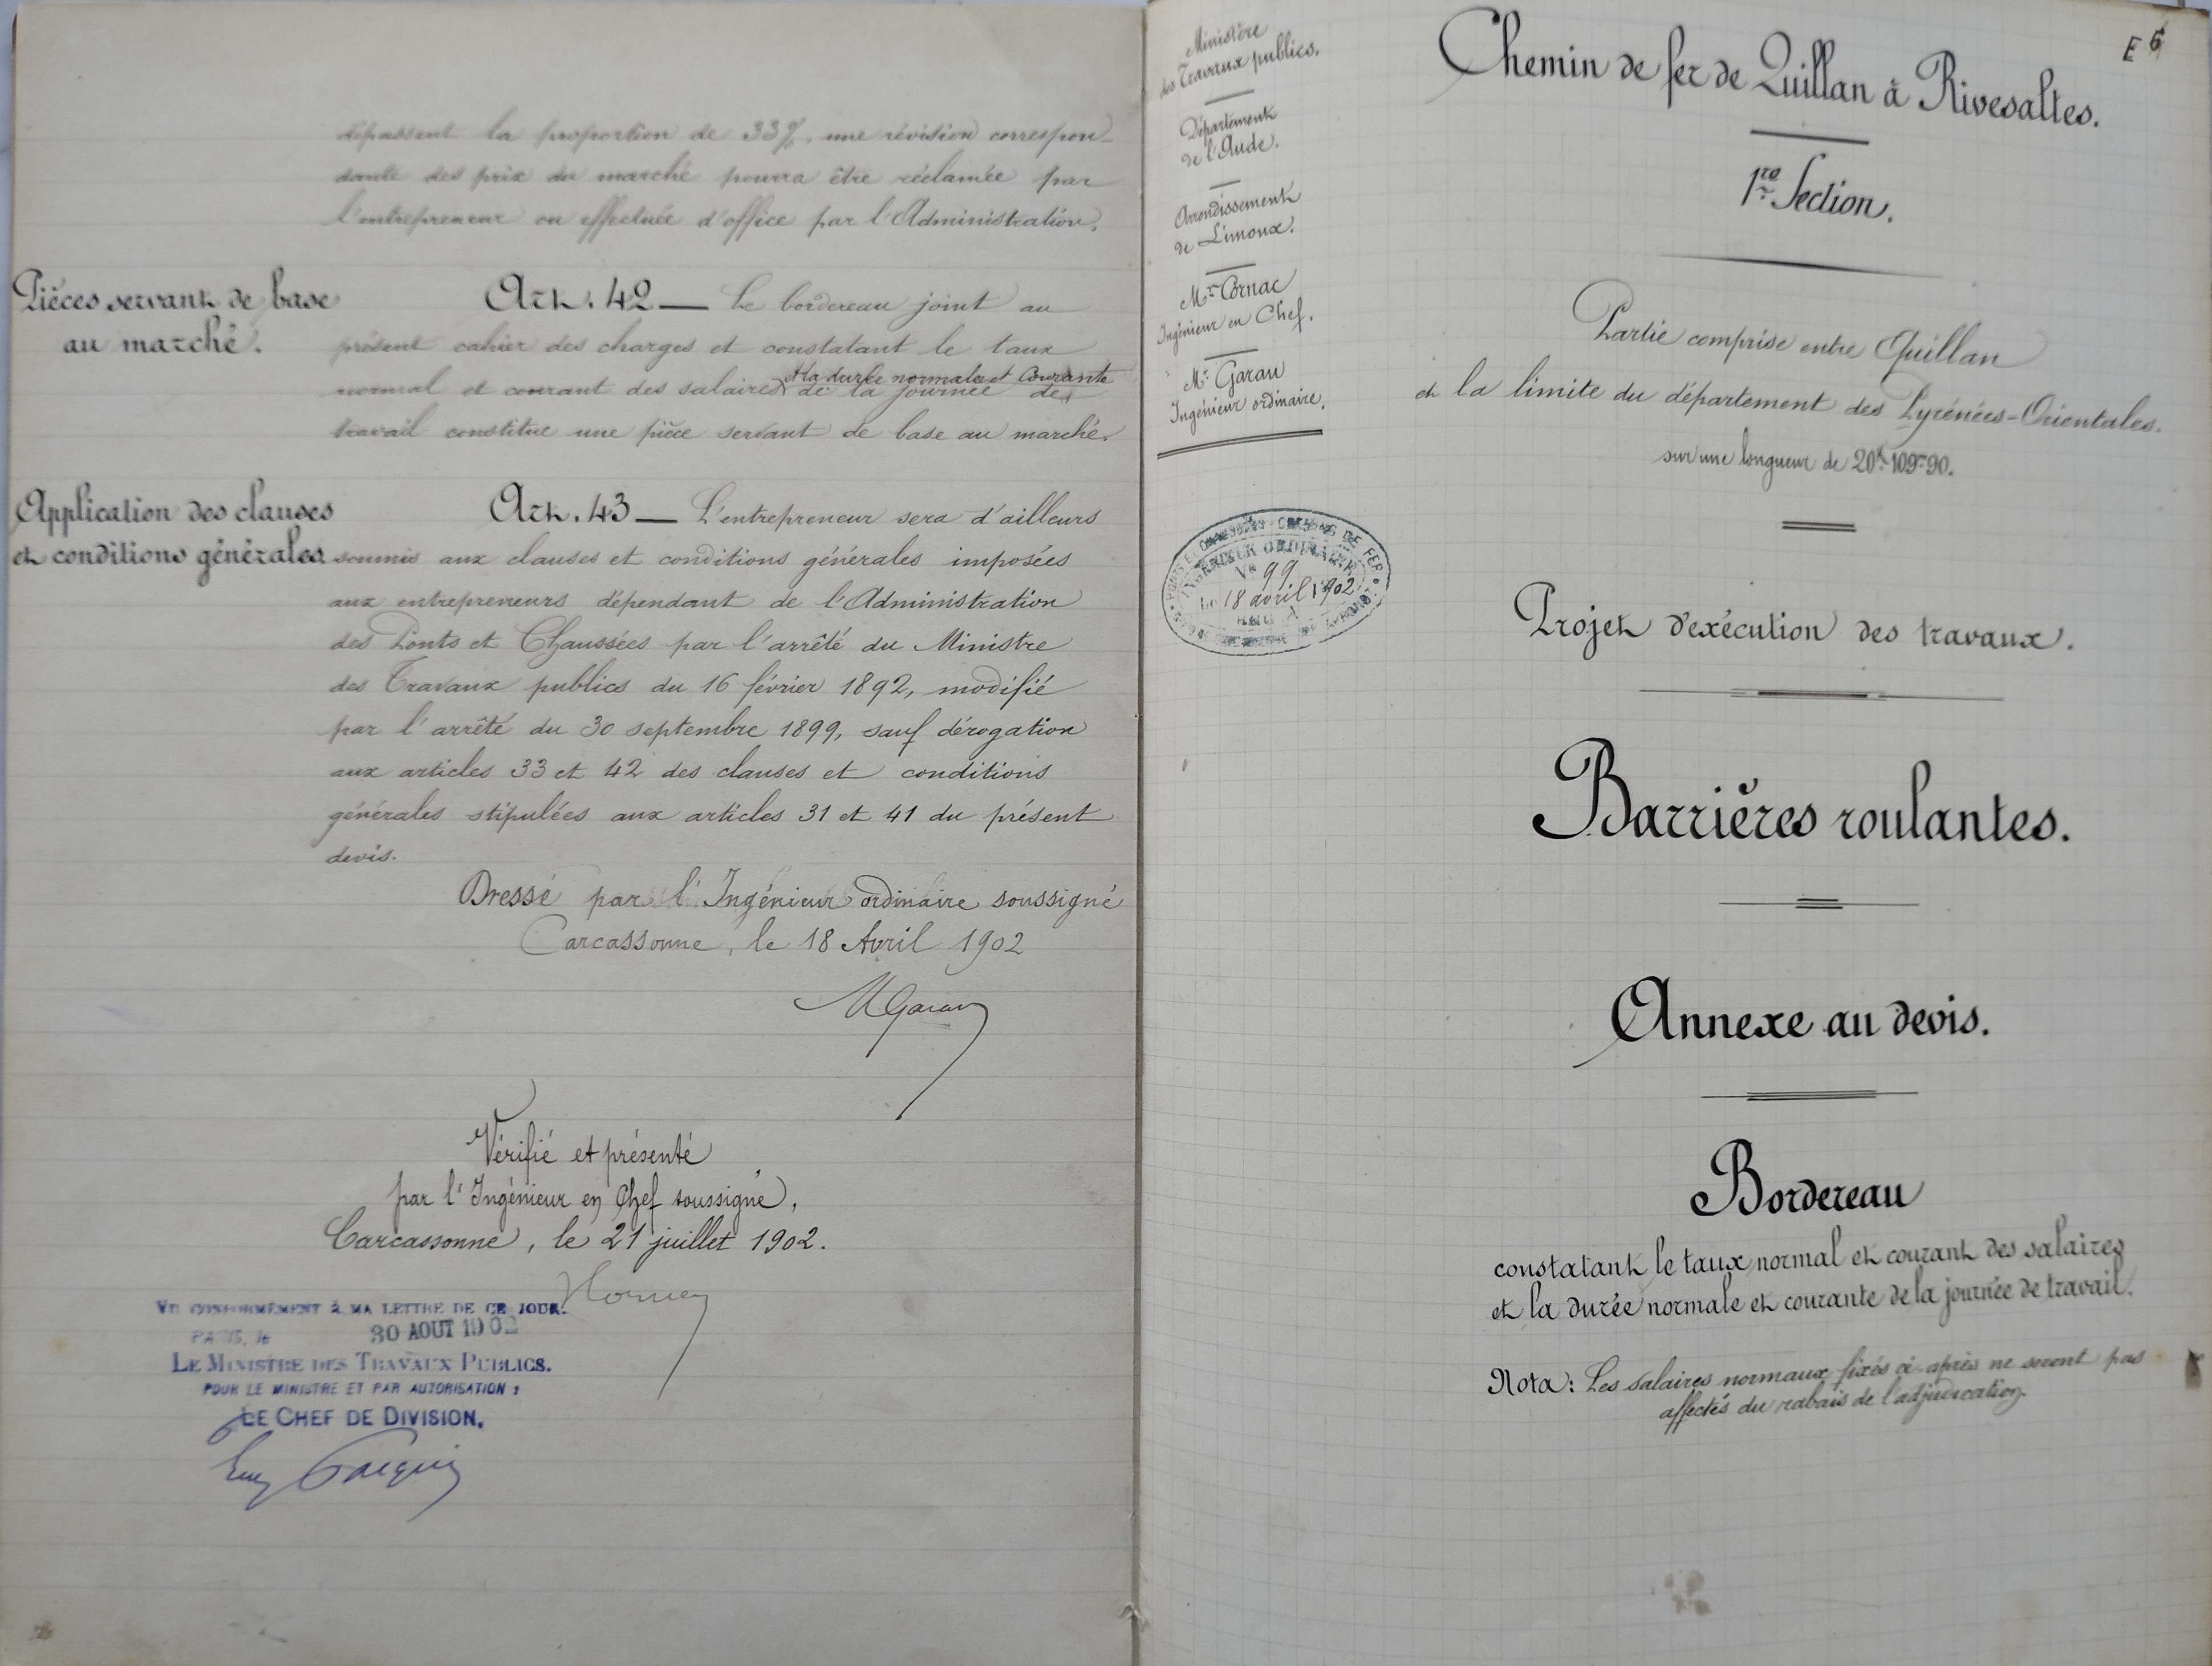 dépassent la proportion de 33%, une révision correspon-
dante des prix du marché pourra être réclamée par
l'entrepreneur ou effectuée d'office par l'Administration.
Pièces servant de base
au marché.
Art. 42 — Le bordereau joint au
présent cahier des charges et constatant le taux
normal et courant des salaires et la durée normale et courante de la journée de
travail constitue une pièce servant de base au marché.
Application des clauses
et conditions générales
Art. 43 — L'entrepreneur sera d'ailleurs
soumis aux clauses et conditions générales imposées
aux entrepreneurs dépendant de l'Administration
des Ponts et Chaussées par l'arrêté du Ministre
des Travaux publics du 16 février 1892, modifié
par l'arrêté du 30 septembre 1899, sauf dérogation
aux articles 33 et 42 des clauses et conditions
générales stipulées aux articles 31 et 41 du présent
devis.
Dressé par l'Ingénieur ordinaire soussigné
Carcassonne, le 18 Avril 1902
MGarau
Vérifié et présenté
par l'Ingénieur en Chef soussigné,
Carcassonne, le 21 juillet 1902.
VU CONFORMÉMENT À MA LETTRE DE CE JOUR.
PARIS, le 30 AOUT 1902
LE MINISTRE DES TRAVAUX PUBLICS.
POUR LE MINISTRE ET PAR AUTORISATION :
LE CHEF DE DIVISION,
Ministère
des Travaux publics.
Département
de l'Aude.
Arrondissement
de Limoux.
Mr Cornac
Ingénieur en Chef.
Mr Garau
Ingénieur ordinaire.
PONTS ET CHAUSSÉES - CHEMINS DE FER
INGÉNIEUR ORDINAIRE
No 99
Le 18 avril 1902
E 6
Chemin de fer de Quillan à Rivesaltes.
1re Section.
Partie comprise entre Quillan
et la limite du département des Pyrénées-Orientales.
sur une longueur de 20k 109m 90.
Projet d'exécution des travaux.
Barrières roulantes.
Annexe au devis.
Bordereau
constatant le taux normal et courant des salaires
et la durée normale et courante de la journée de travail.
Nota: Les salaires normaux fixés ci-après ne seront pas
affectés du rabais de l'adjudication.